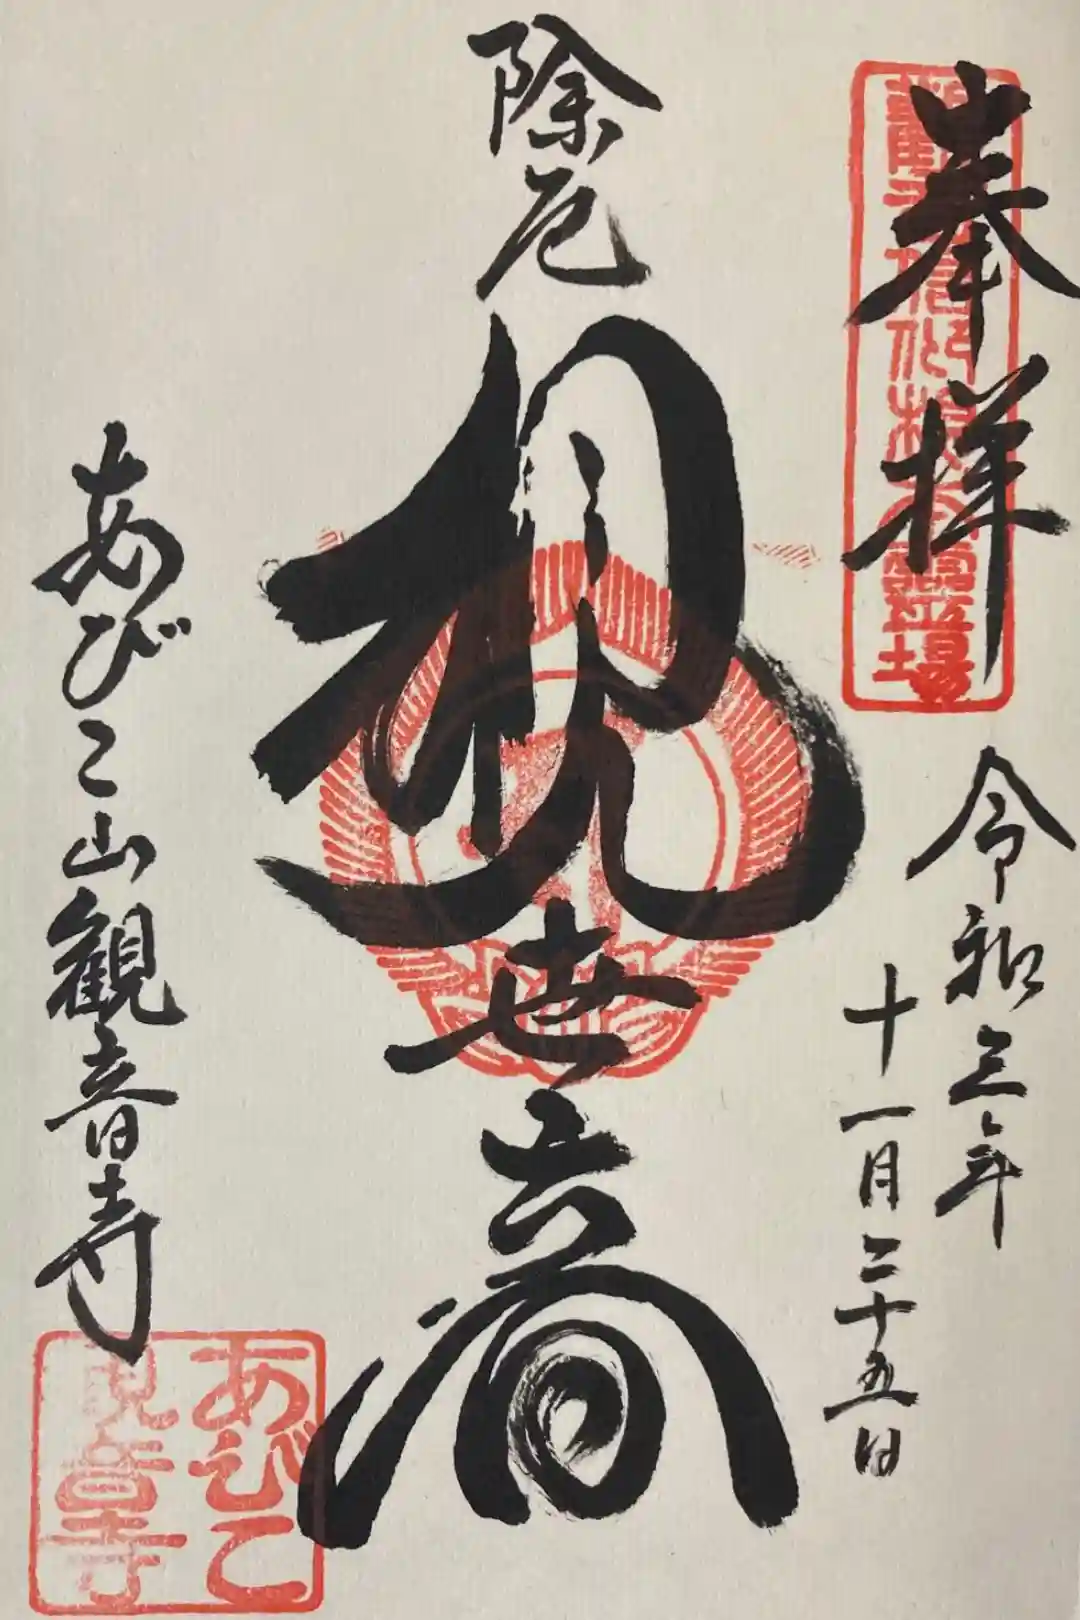 奉拝
令和三年
十一月二十五日
除厄
観世音
あびこ山観音寺
あびこ
観音寺